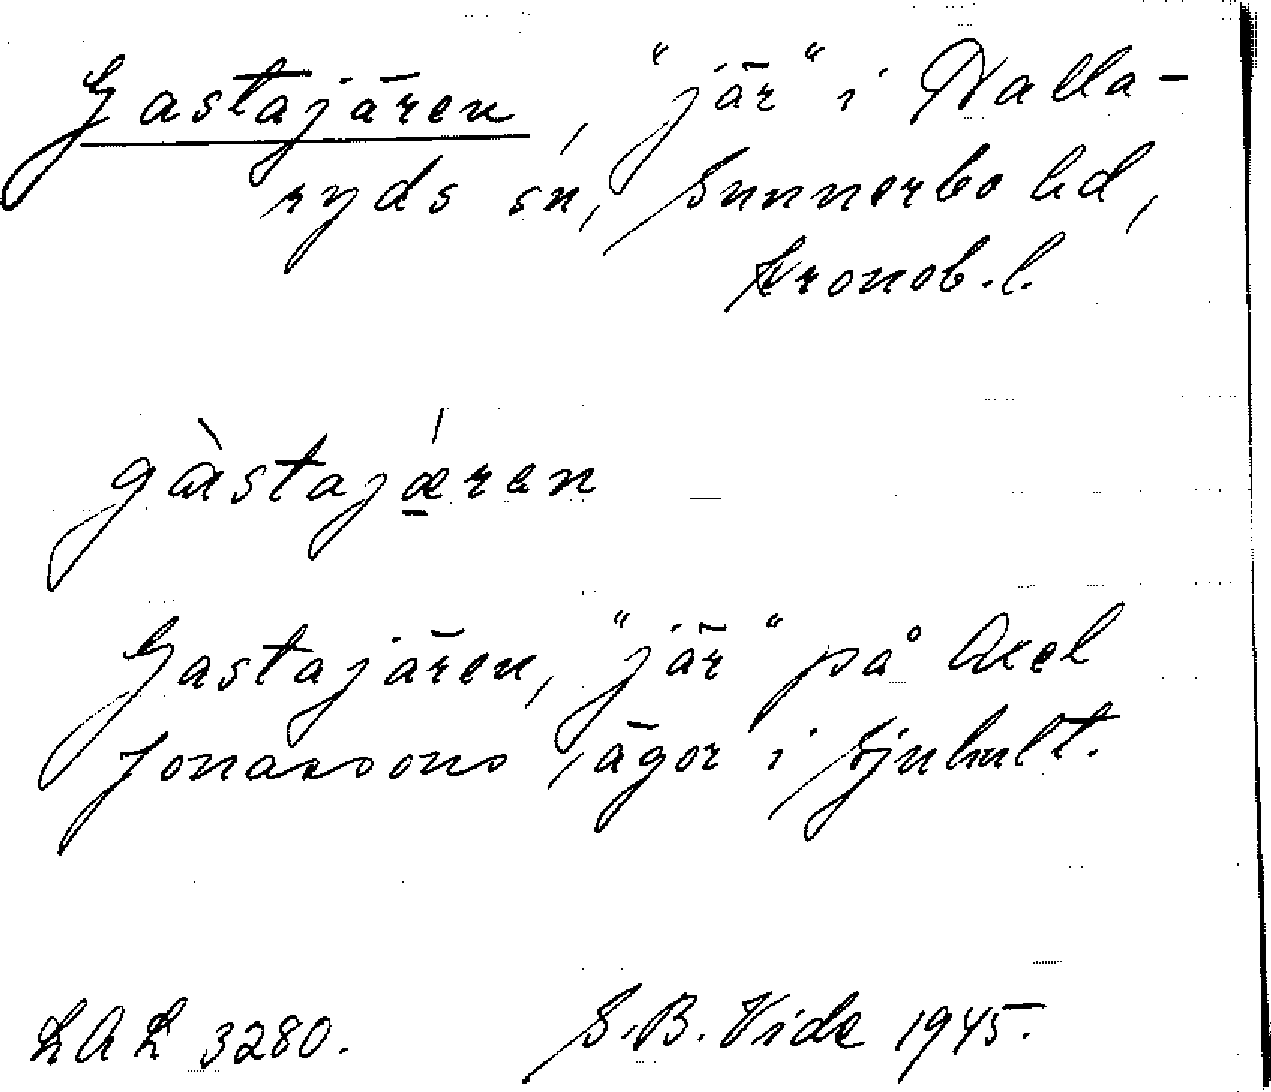 Gastajären, "jär" i Halla-
ryds sn, Sunnerbo hd,
Kronob. l.
gàstajǽren
Gastajären, "jär" på Axel
Jonassons ägor i Sjuhult.
LAL 3280. S.B. Vide 1945.